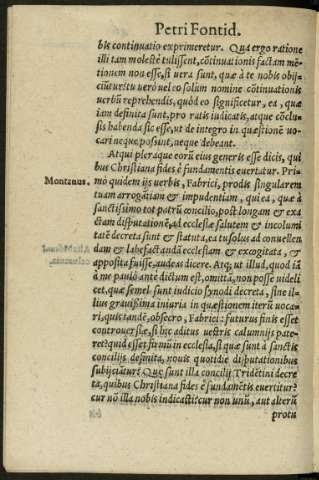 Petri Fontid.
bis continuatio exprimeretur. Qua ergo ratione
illi tam molestè tulissent, cõtinuationis factam mē-
tionem non esse, si uera sunt, quæ à te nobis obij-
ciũtur? tu uerò uel eo solùm nomine cõtinuationis
uerbũ reprehendis, quòd eo significetur, ea, quæ
iam definita sunt, pro ratis iudicatis, atque cõclu-
sis habenda sic esse, ut de integro in quæstionē uo-
cari neque possunt, neque debeant.
Atqui pleraque eorũ eius generis esse dicis, qui
bus Christiana fides è fundamentis euertatur. Pri-
Montanus.
mò quidem ijs uerbis, Fabrici, prodis singularem
tuam arrogãtiam & impudentiam, qui ea, quæ à
sanctissimo tot patrũ concilio, post longam & exa
ctam disputationē, ad ecclesiæ salutem & incolumi
tatē decreta sunt & statuta, ea tu solus ad conuellen
dam & labefactandã ecclesiam & excogitata, &
apposita fuisse, audeas dicere. Atq; ut illud, quod iã
à me paulò antè dictum est, omittã, non posse uideli
cet, quæ semel sunt iudicio synodi decreta, sine il-
lius grauissima iniuria in quæstionem iterũ uoca-
ri, quis tandē, obsecro, Fabrici: futurus finis esset
controuersiæ, si hic aditus uestris calumnijs pate-
ret? quid esset firmũ in ecclesia, si quæ sunt à sanctis
concilijs definita, nouis quotidie disputationibus
subijciãtur? Quæ sunt illa concilij Tridētini decre
ta, quibus Christiana fides è fundamētis euertitur?
cur nõ illa nobis indicasti? cur non unũ, aut alterũ
protu